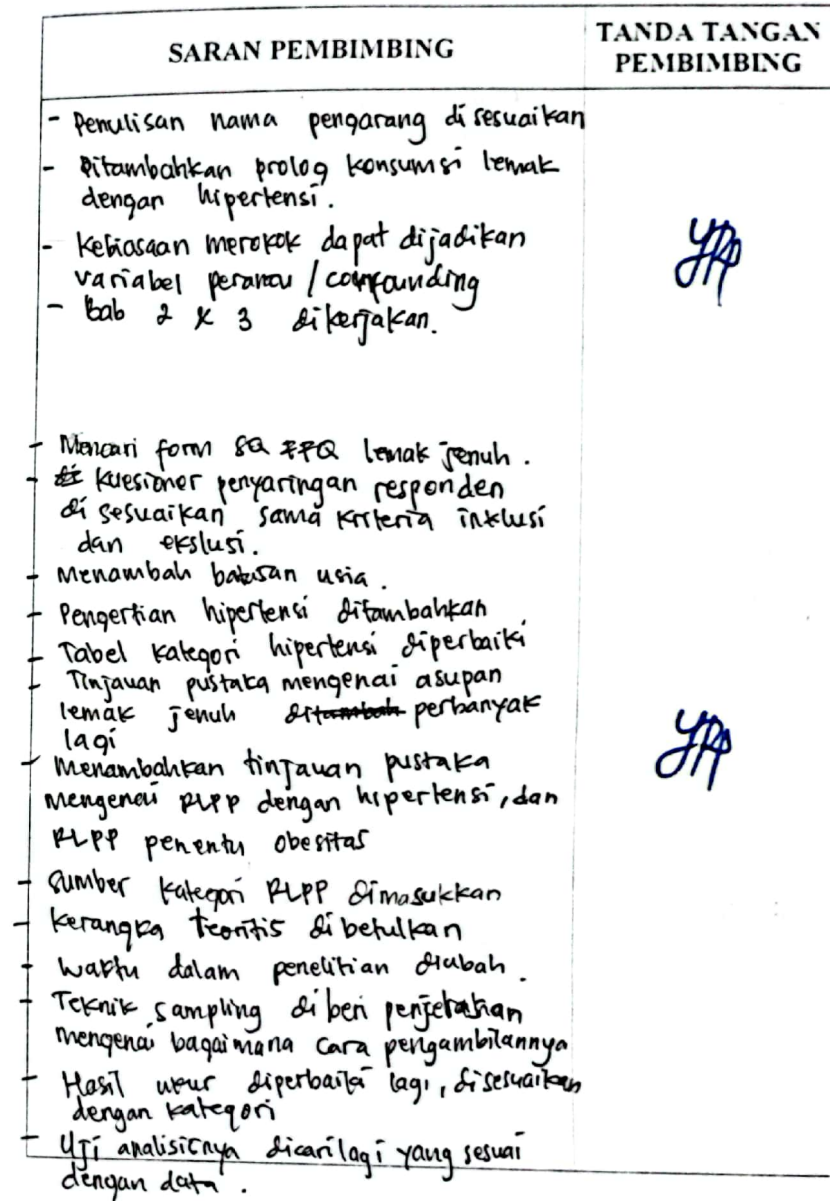 SARAN PEMBIMBING
TANDA TANGAN
PEMBIMBING
- Penulisan nama pengarang disesuaikan
- Ditambahkan prolog konsumsi lemak
dengan hipertensi.
- Kebiasaan merokok dapat dijadikan
variabel perancu / confounding
- Bab 2 & 3 dikerjakan.
- Mencari form SQ FFQ lemak jenuh.
- kuesioner penyaringan responden
di sesuaikan sama kriteria inklusi
dan ekslusi.
- Menambah batasan usia.
- Pengertian hipertensi ditambahkan
- Tabel kategori hipertensi diperbaiki
- Tinjauan pustaka mengenai asupan
lemak jenuh perbanyak
lagi
- Menambahkan tinjauan pustaka
mengenai RLPP dengan hipertensi, dan
RLPP penentu obesitas
- Sumber kategori RLPP dimasukkan
- kerangka teoritis dibetulkan
- waktu dalam penelitian diubah.
- Teknik sampling diberi penjelasan
mengenai bagaimana cara pengambilannya
- Hasil ukur diperbaiki lagi, disesuaikan
dengan kategori
- Uji analisisnya dicari lagi yang sesuai
dengan data.